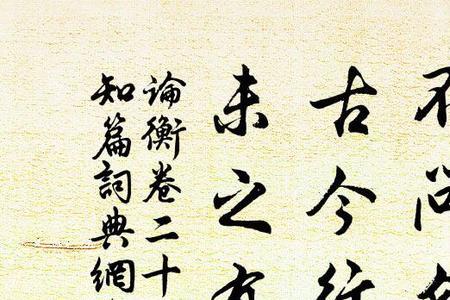 不問
古今行
未之有
論衡卷二十
知篇詞典網